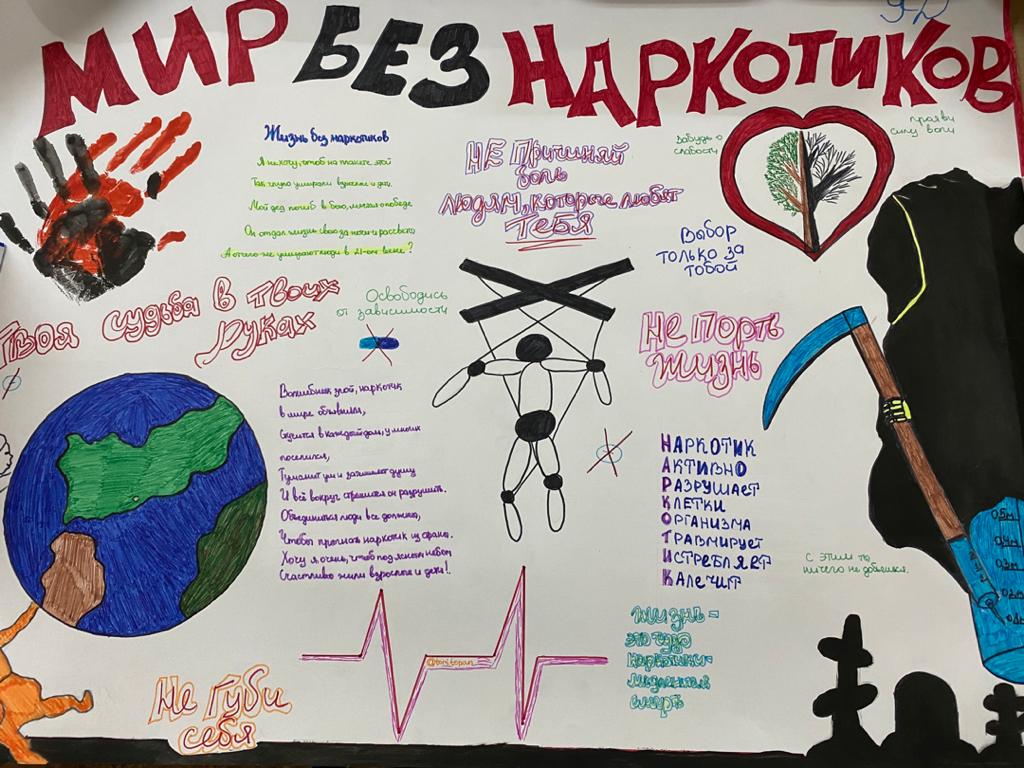 9-Д
МИР БЕЗ НАРКОТИКОВ
Жизнь без наркотиков
Я не хочу, чтоб на планете этой
Так глупо умирали взрослые и дети.
Мой дед погиб в бою, мечтая о победе
Он отдал жизнь свою за ночи и рассветы
А отчего же умирают люди в 21-ом веке?
НЕ Причиняй
боль
людям, которые любят
ТЕБЯ
Забудь о
слабости
прояви
силу воли
Выбор
только за
тобой
Твоя судьба в твоих
руках
Освободись
от зависимости
Не Порть
жизнь
Волшебник злой, наркотик
в мире объявился,
Стучится в каждый дом, у многих
поселился,
Туманит ум и зачиняет душу
И всё вокруг стремится он разрушить.
Объединиться люди все должны,
Чтобы прогнать наркотик из страны.
Хочу я очень, чтоб под ясным небом
Счастливо жили взрослые и дети!.
НАРКОТИК
АКТИВНО
РАЗРУШАЕТ
КЛЕТКИ
ОРГАНИЗМА
ТРАВМИРУЕТ
ИСТРЕБЛЯЕТ
КАЛЕЧИТ
С этим ты
ничего не добьёшься.
Жизнь -
это чудо
Наркотики-
медленная
смерть
Не Губи
себя
0,5м
0,4м
0,3м